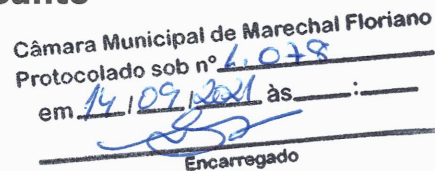 Câmara Municipal de Marechal Floriano
Protocolado sob nº 1.078
em 14/09/2021 às ___:___
Encarregado